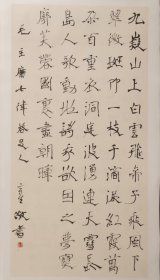 九嶷山上白雲飛帝子乘風下
翠微斑竹一枝千滴淚紅霞萬
朵百重衣洞庭波涌連天雪長
島人歌動地詩我欲因之夢寥
廓芙蓉國裏盡朝暉
毛主席七律答友人
書